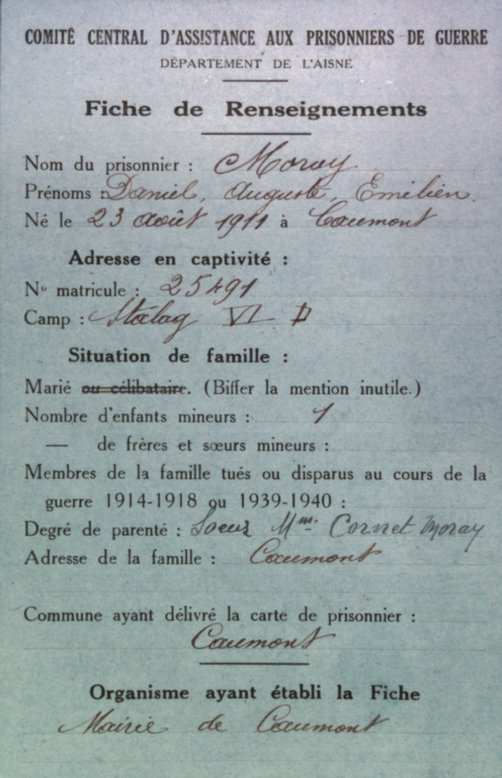 COMITÉ CENTRAL D'ASSISTANCE AUX PRISONNIERS DE GUERRE
DÉPARTEMENT DE L'AISNE
Fiche de Renseignements
Nom du prisonnier : Moray
Prénoms : Daniel, Auguste, Emilien
Né le 23 août 1911 à Caumont
Adresse en captivité :
No matricule : 25491
Camp : Stalag VI D
Situation de famille :
Marié ou célibataire. (Biffer la mention inutile.)
Nombre d'enfants mineurs : 1
— de frères et sœurs mineurs :
Membres de la famille tués ou disparus au cours de la
guerre 1914-1918 ou 1939-1940 :
Degré de parenté : Soeur Mme Cornet Moray
Adresse de la famille : Caumont
Commune ayant délivré la carte de prisonnier :
Caumont
Organisme ayant établi la Fiche
Mairie de Caumont